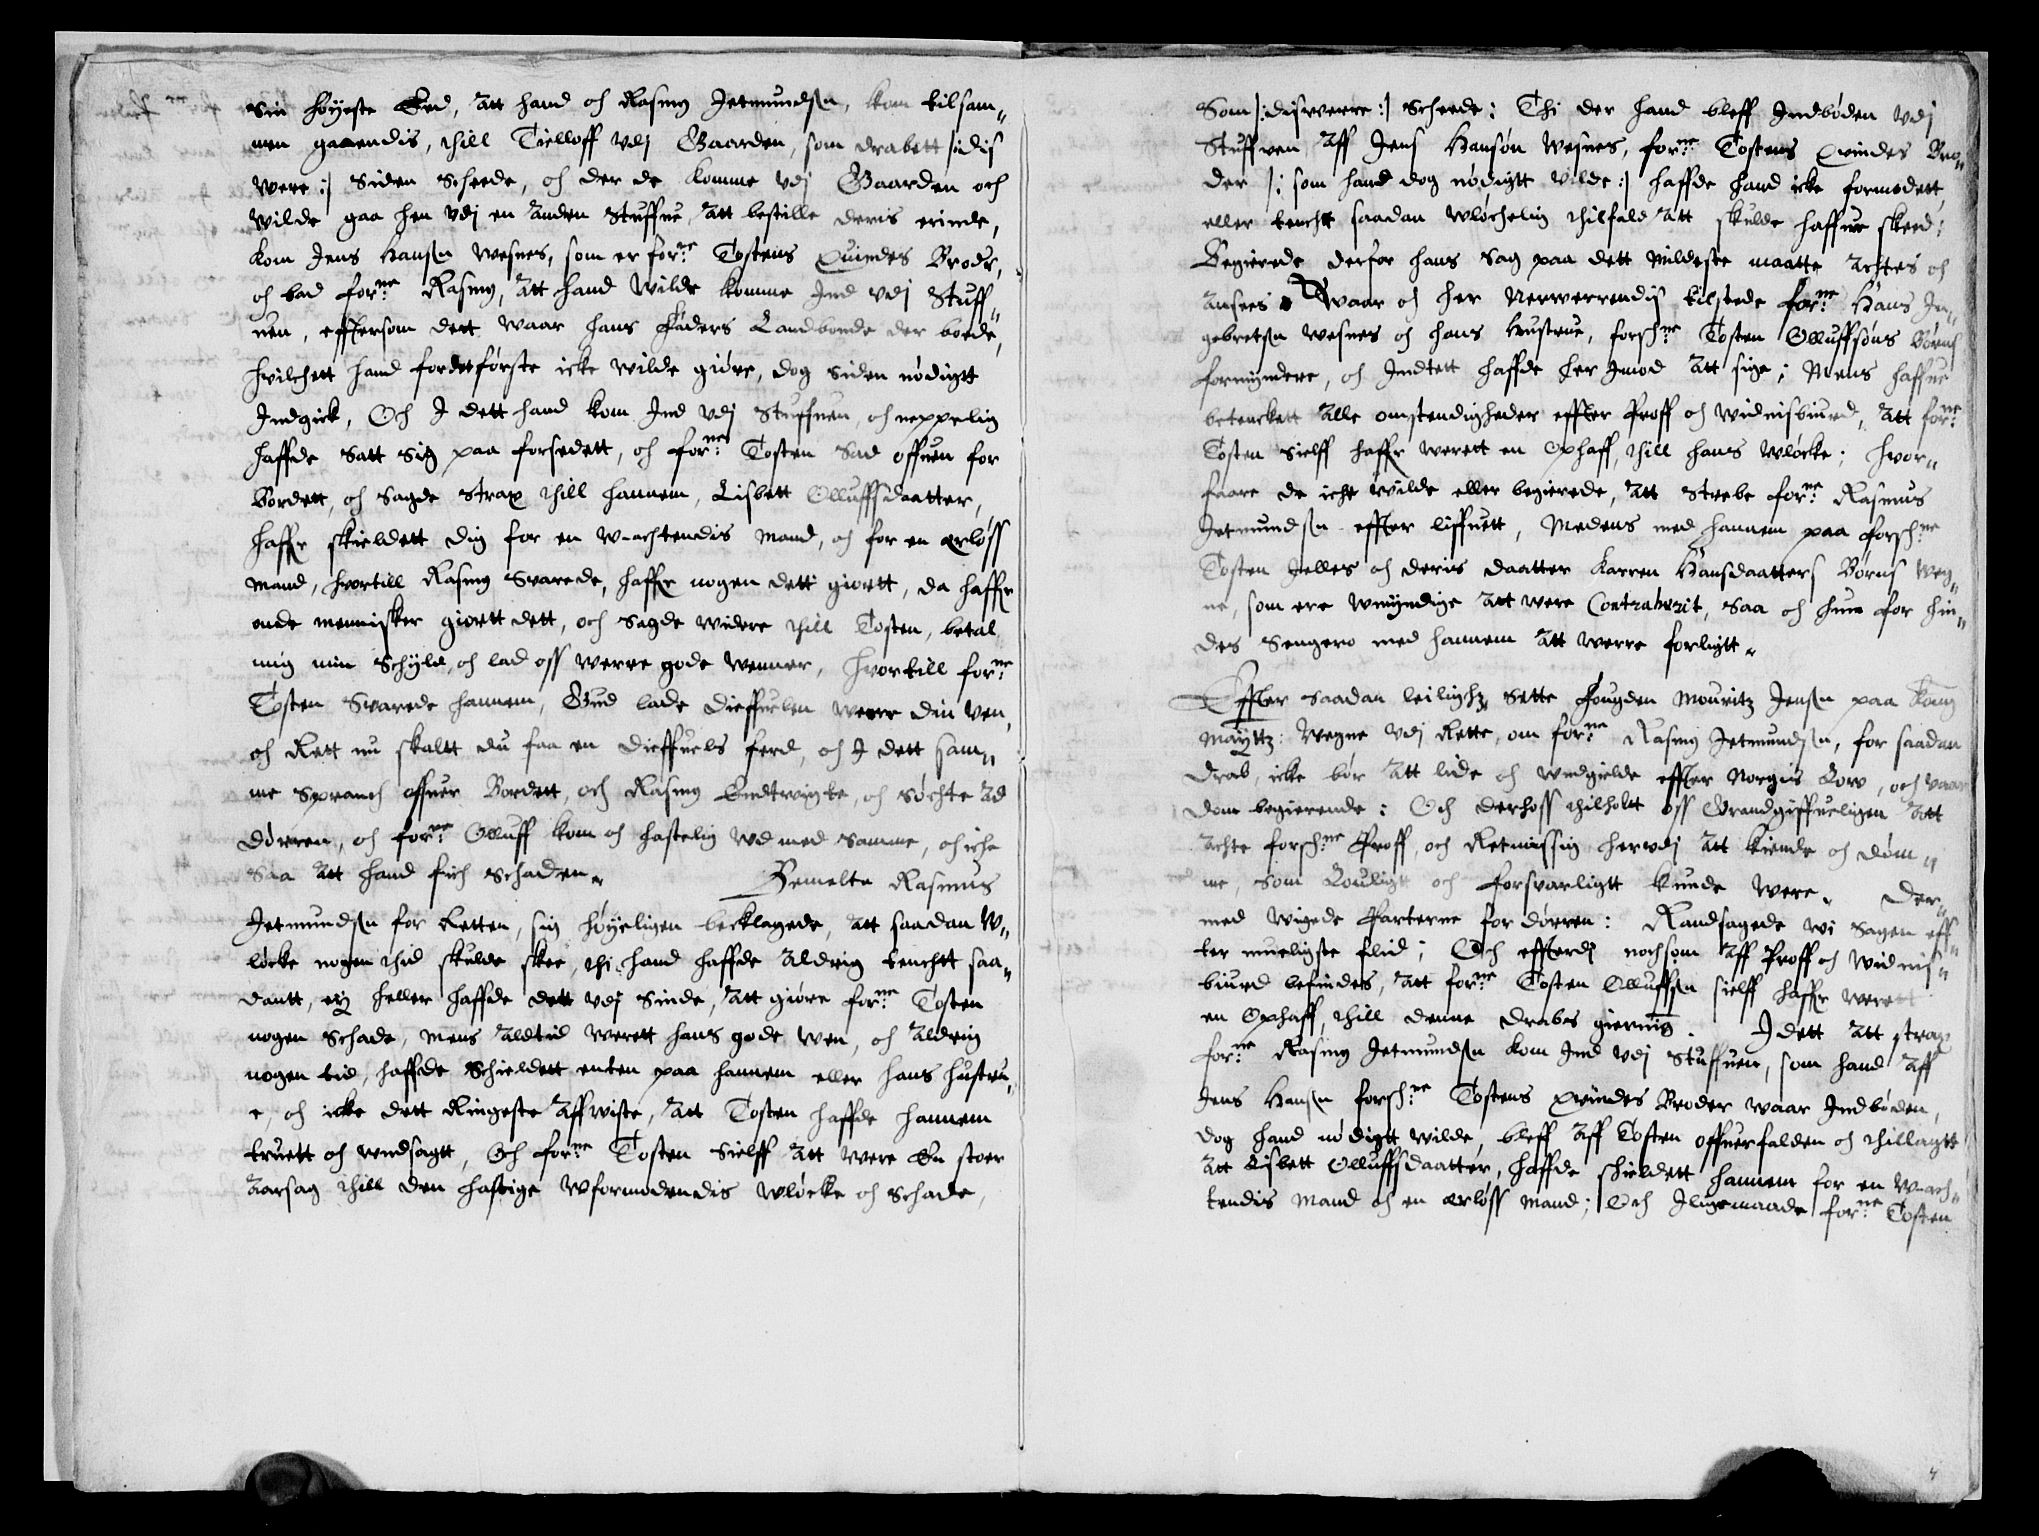 Sin höyeste Eed, Att hand och Rasmus Jetmundsen, kom tilsam„
men gaaendis, thill Tielloff vdj Gaarden, som drabett |:dis
Were:| Siden Scheede, och der de komme vdj Gaarden och
Wilde gaa hen vdj en Anden Stuffue, Att bestille deris erinde,
kom Jens Hansen Wesnes, som er for:ne Tostens Quindes Brodr,
och bad for:ne Rasmus, Att hand Wilde komme Ind vdj Stuff„
uen, effttersom dett Waar hans Faders Landbonde der boede,
huilchett hand fordetførste icke Wilde giøre, dog Siden nødigtt
Indgick, Och J dett hand kom Ind vdj Stuffuen, och neppelig
haffde Satt Sig paa forsedett, och for:ne Tosten Sad offuen for
Bordett, och Sagde Strax thill hannem, Lisbett Olluffsdaatter,
haffr skieldett dig for en W-achtendis Mand, och for en ærløss
Mand, huortill Rasmus Svarede, haffr nogen dett giortt, da haffr
onde mennisker giortt dett, och Sagde Widere thill Tosten, betal
mig min Schyld, och lad oss Werre gode Wenner, huortill for:ne
Tosten Svarede hannem, Gud lade dieffuelen Werre din Ven,
och Rett nu skaltt du faa en dieffuels ferd, och J dett Sam„
me Spranch offuer Bordett, och Rasmus Endtwigte, och Søchte Ad
Dørren, och for:ne Olluff kom och hastelig Wd med Samme, och iche
Saa Att hand fich Schaden. Bemelte Rasmus
Jetmundsen for Retten, sig høyeligen becklagede, Att saadan W„
løcke nogen thid skulde skee, thi hand haffde Aldrig tenchtt saa„
dantt, eij heller haffde dett vdj Sinde, Att giøre for:ne Tosten
nogen Schade, Mens Aldtid Werett hans gode Wen, och Aldrig
nogen tid, haffde Schieldett enten paa hannem eller hans hustru„
e, och icke dett Ringeste Aff Wiste, Att Tosten haffde hannem
truett och Vndsagtt, Och for:ne Tosten Sielff Att Were En stoer
Aarsag thill den hastige Wformodendis Wløcke och Schade,
Som |:disWerre:| Scheede: Thi der hand bleff Indbøden vdj
Stuffuen Aff Jens Hansøn Wesnes, for:ne Tostens Quindes Bro„
der |: som hand dog nødigtt Wilde:| haffde hand icke formodett,
eller tenchtt saadan Wløchelig thilfald Att skulde haffue skeed;
Begierede derfor hans Sag paa dett Mildeste maatte Achtes och
Ansees Waar och her Nerwerrendis tilstede for:ne Hans In„
gebretsen Wesnes och hans Hustrue, forsch:ne Tosten Olluffsøns Børns
formyndere, och Indtett haffde her Imod Att sige; Mens haffue
betenckett Alle omstendigheder effter Proff och Widnisbiurd, Att for:ne
Tosten Sielff haffr Werett en Ophaff, thill hans Wløcke; huor„
faare de iche Wilde eller begierede, Att Strebe for:ne Rasmus
Jetmundsen effter liffuett, Medens med hannem paa forsch:ne
Tosten Jelles och deris daatter Karren Hansdaatters Børns Weg„
ne, som ere Wmyndige Att Were Contraherit, Saa och hun for hin„
des Sengero med hannem Att Werre forligtt.
Effter saadan leilighz Sette Fougden Mouritz Jensen paa Kong
Maÿttz: Wegne vdj Rette, om for:ne Rasmus Jetmundsen, for saadan
Drab, icke bør Att lide och Vndgielde effter Norgis Low, och Vaar
Dom begierende: Och derhoss thilholtt oss Grandgiffueligen Att
Achte forsch:ne Proff, och Retmessig herudj Att kiende och Døm„
me, som Louligt och forsvarligtt kunde Were. Der„
med Wigede Parterne for dørren: Randsagede Wi Sagen eff„
ter mueligste flid; Och effterdj nochsom Aff Proff och Widnis„
biurd befindes, Att for:ne Tosten Olluffsen sielff haffr Werett
en Ophaff, thill denne Drabs giernig. J dett Att strax
for:ne Rasmus Jetmundsen kom Ind vdj Stuffuen, som hand Aff
Jens Hansen forsch:ne Tostens Quindes Broder Waar Indbøden,
Dog hand nødigtt Wilde, bleff Aff Tosten offuerfalden och thillagtt
Att Lisbett Olluffsdaatter, haffde schieldett hannem for en W-ach„
tendis Mand och en ærløss Mand; Och Jligemaade for:ne Tosten